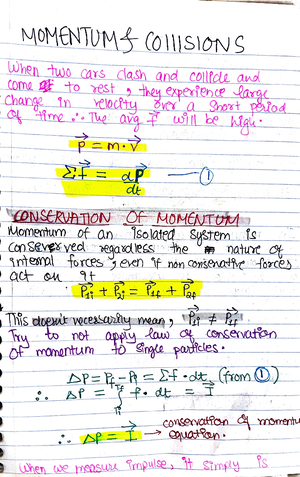 MOMENTUM & COllISIONS
When two cars clash and collide and
come to rest, they experience large
change in velocity over a short period
of time ∴ The avg F⃗ will be high.
P⃗ = m·V⃗
Σf⃗ = dP⃗/dt — ①
CONSERVATION OF MOMENTUM
Momentum of an isolated system is
conserverved regardless the nature of
internal forces, even if non conservative forces
act on it
P⃗1i + P⃗2i = P⃗1f + P⃗2f
This doesn't necessarily mean, P⃗1i ≠ P⃗2f
Try to not apply law of conservation
of momentum to single particles.
ΔP = Pf - Pi = Σf · dt (from ①)
∴ ΔP = ∫ f · dt = I⃗
∴ ΔP = I⃗ → conservation of momentu
equation.
When we measure impulse, it simply is